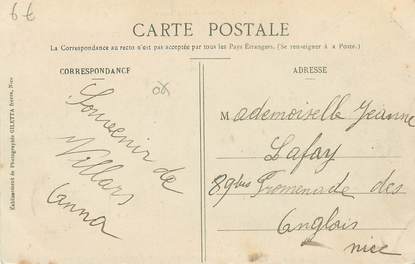 6 €
CARTE POSTALE
La Correspondance au recto n'est pas acceptée par tous les Pays Étrangers. (Se renseigner à a Poste.)
CORRESPONDANCE
ADRESSE
Établissement de Photographie GILETTA frères, Nice
Souvenir de
Villars
Anna
Mademoiselle Jeanne
Lafay
89bis Promenade des
Anglais
nice